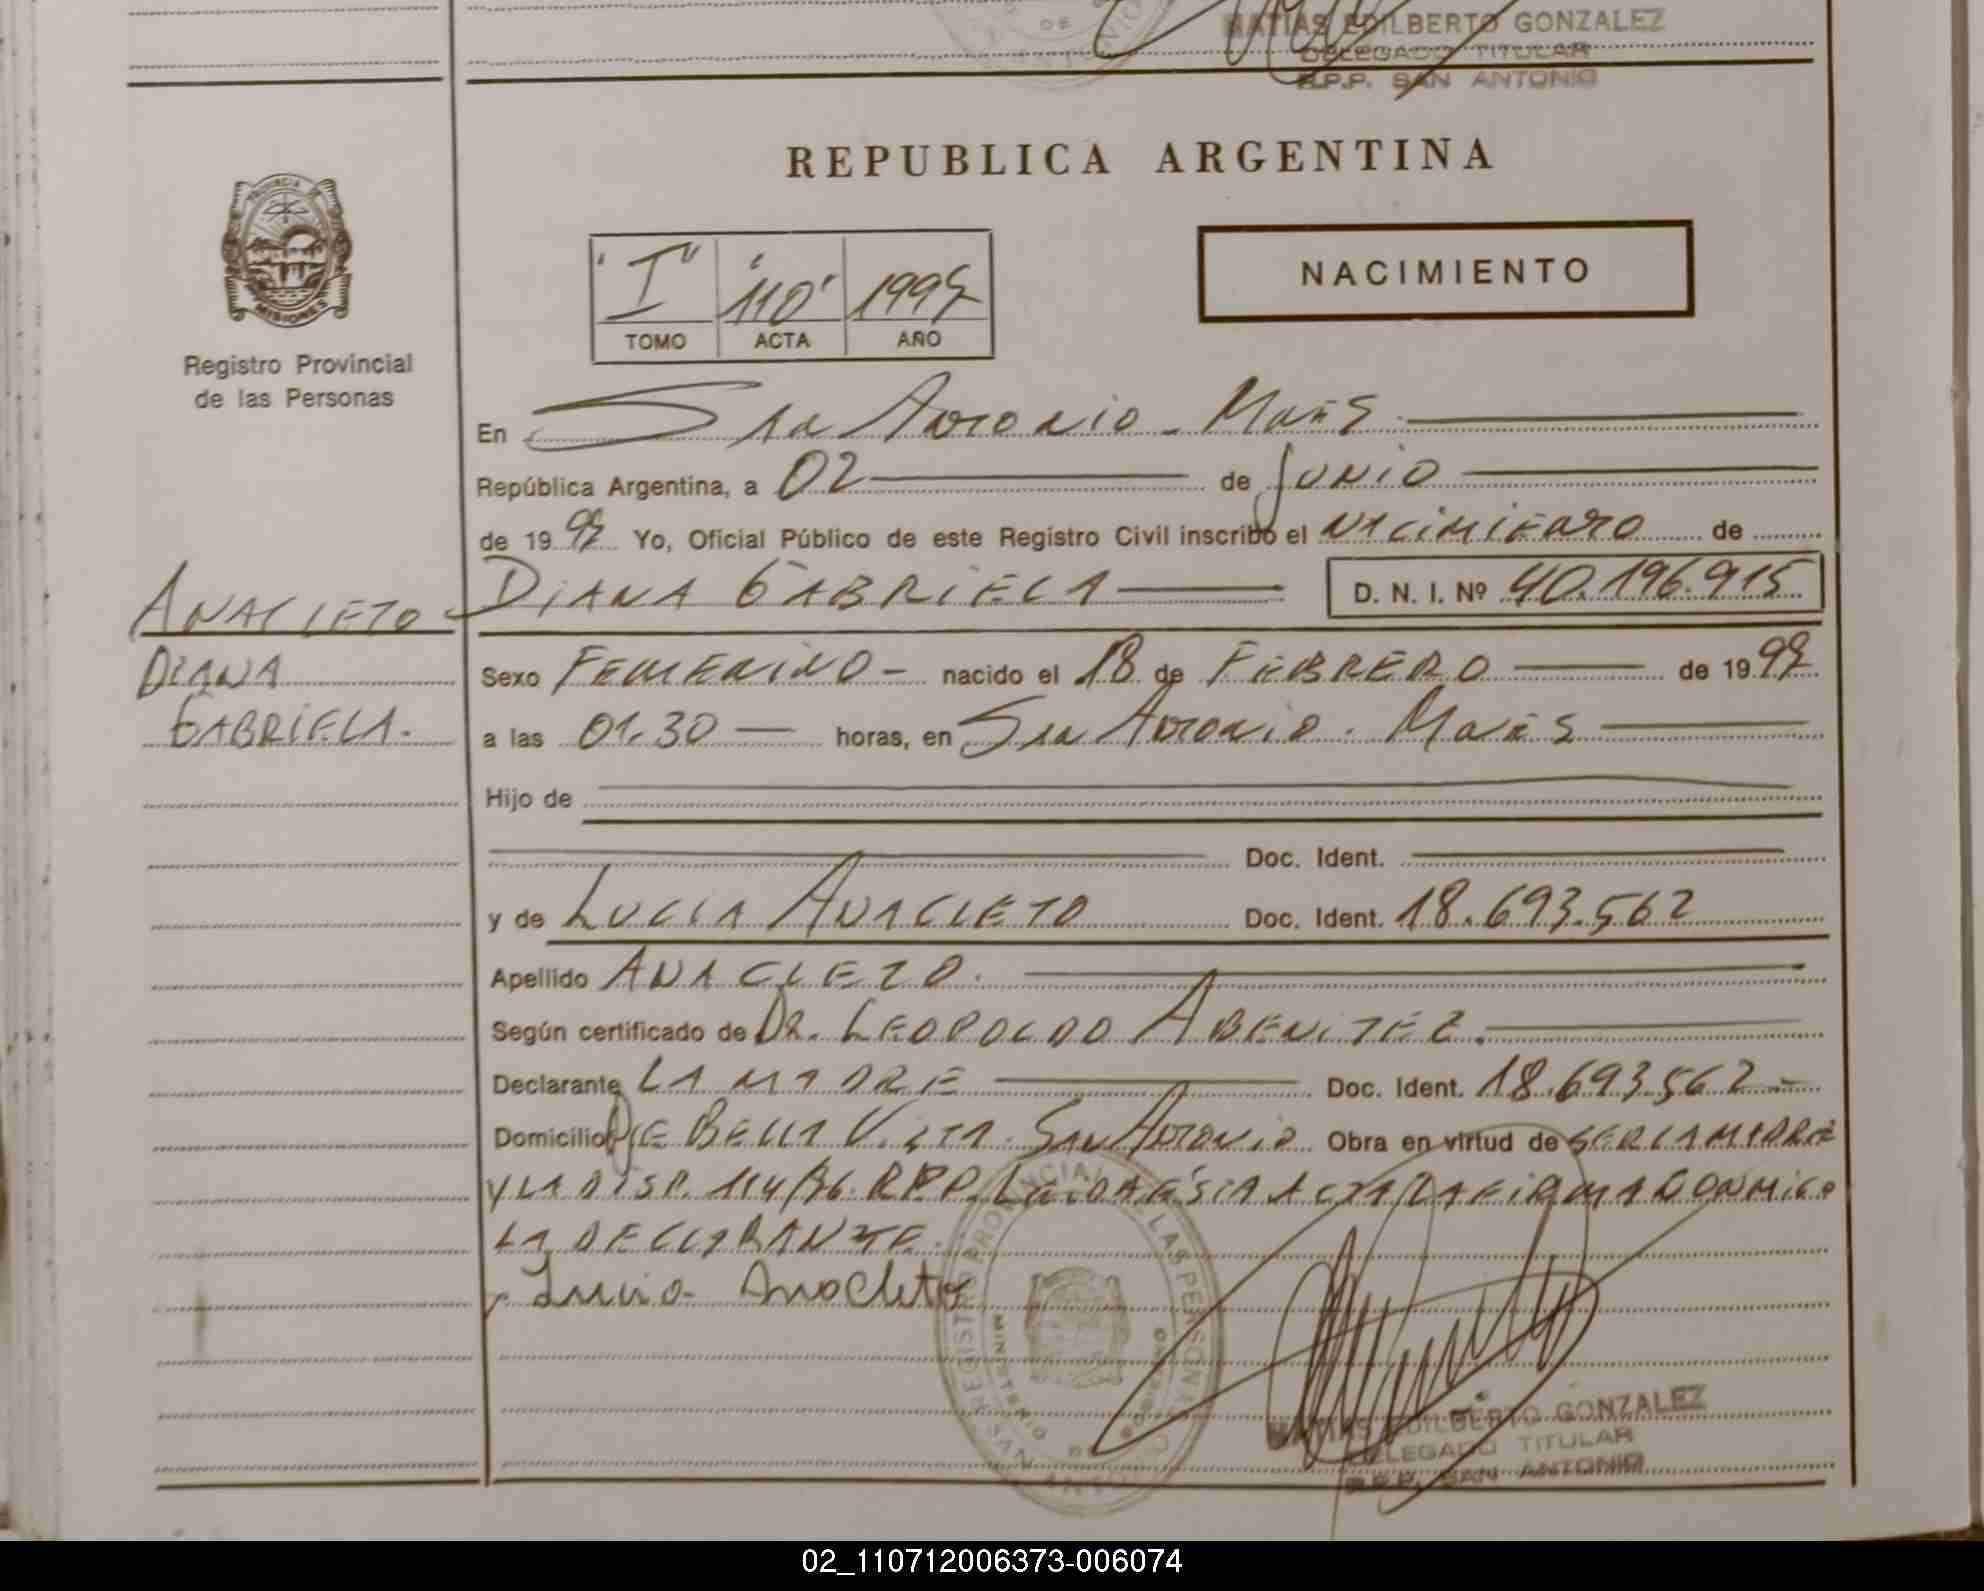 MATIAS EDILBERTO GONZALEZ
DELEGADO TITULAR
R.P.P. SAN ANTONIO
REPUBLICA ARGENTINA
PROVINCIA DE
MISIONES
Registro Provincial
de las Personas
"I" "110" 1997
TOMO ACTA AÑO
NACIMIENTO
En San Antonio - Mnes
República Argentina, a 02 de Junio
de 1997 Yo, Oficial Público de este Registro Civil inscribo el NACIMIENTO de
ANACLETO DIANA GABRIELA D. N. I. Nº 40.196.915
DIANA
GABRIELA.
Sexo FEMENINO - nacido el 18 de FEBRERO de 1997
a las 01.30 horas, en San Antonio. Mnes
Hijo de
Doc. Ident.
y de LUCIA ANACLETO Doc. Ident. 18.693.562
Apellido ANACLETO.
Según certificado de DR. LEOPOLDO A BENITEZ.
Declarante LA MADRE Doc. Ident. 18.693.562 -
Domicilio BELLA VISTA. San Antonio Obra en virtud de SER LA MADRE
Y LA DISP. 114/96. R.P.P. Leida ESTA ACTA LA FIRMA CONMIGO
LA DECLARANTE.
Lucia Anacleto
REGISTRO PROVINCIAL DE LAS PERSONAS
MINISTERIO DE GOBIERNO
MATIAS EDILBERTO GONZALEZ
DELEGADO TITULAR
R.P.P. SAN ANTONIO
02_110712006373-006074